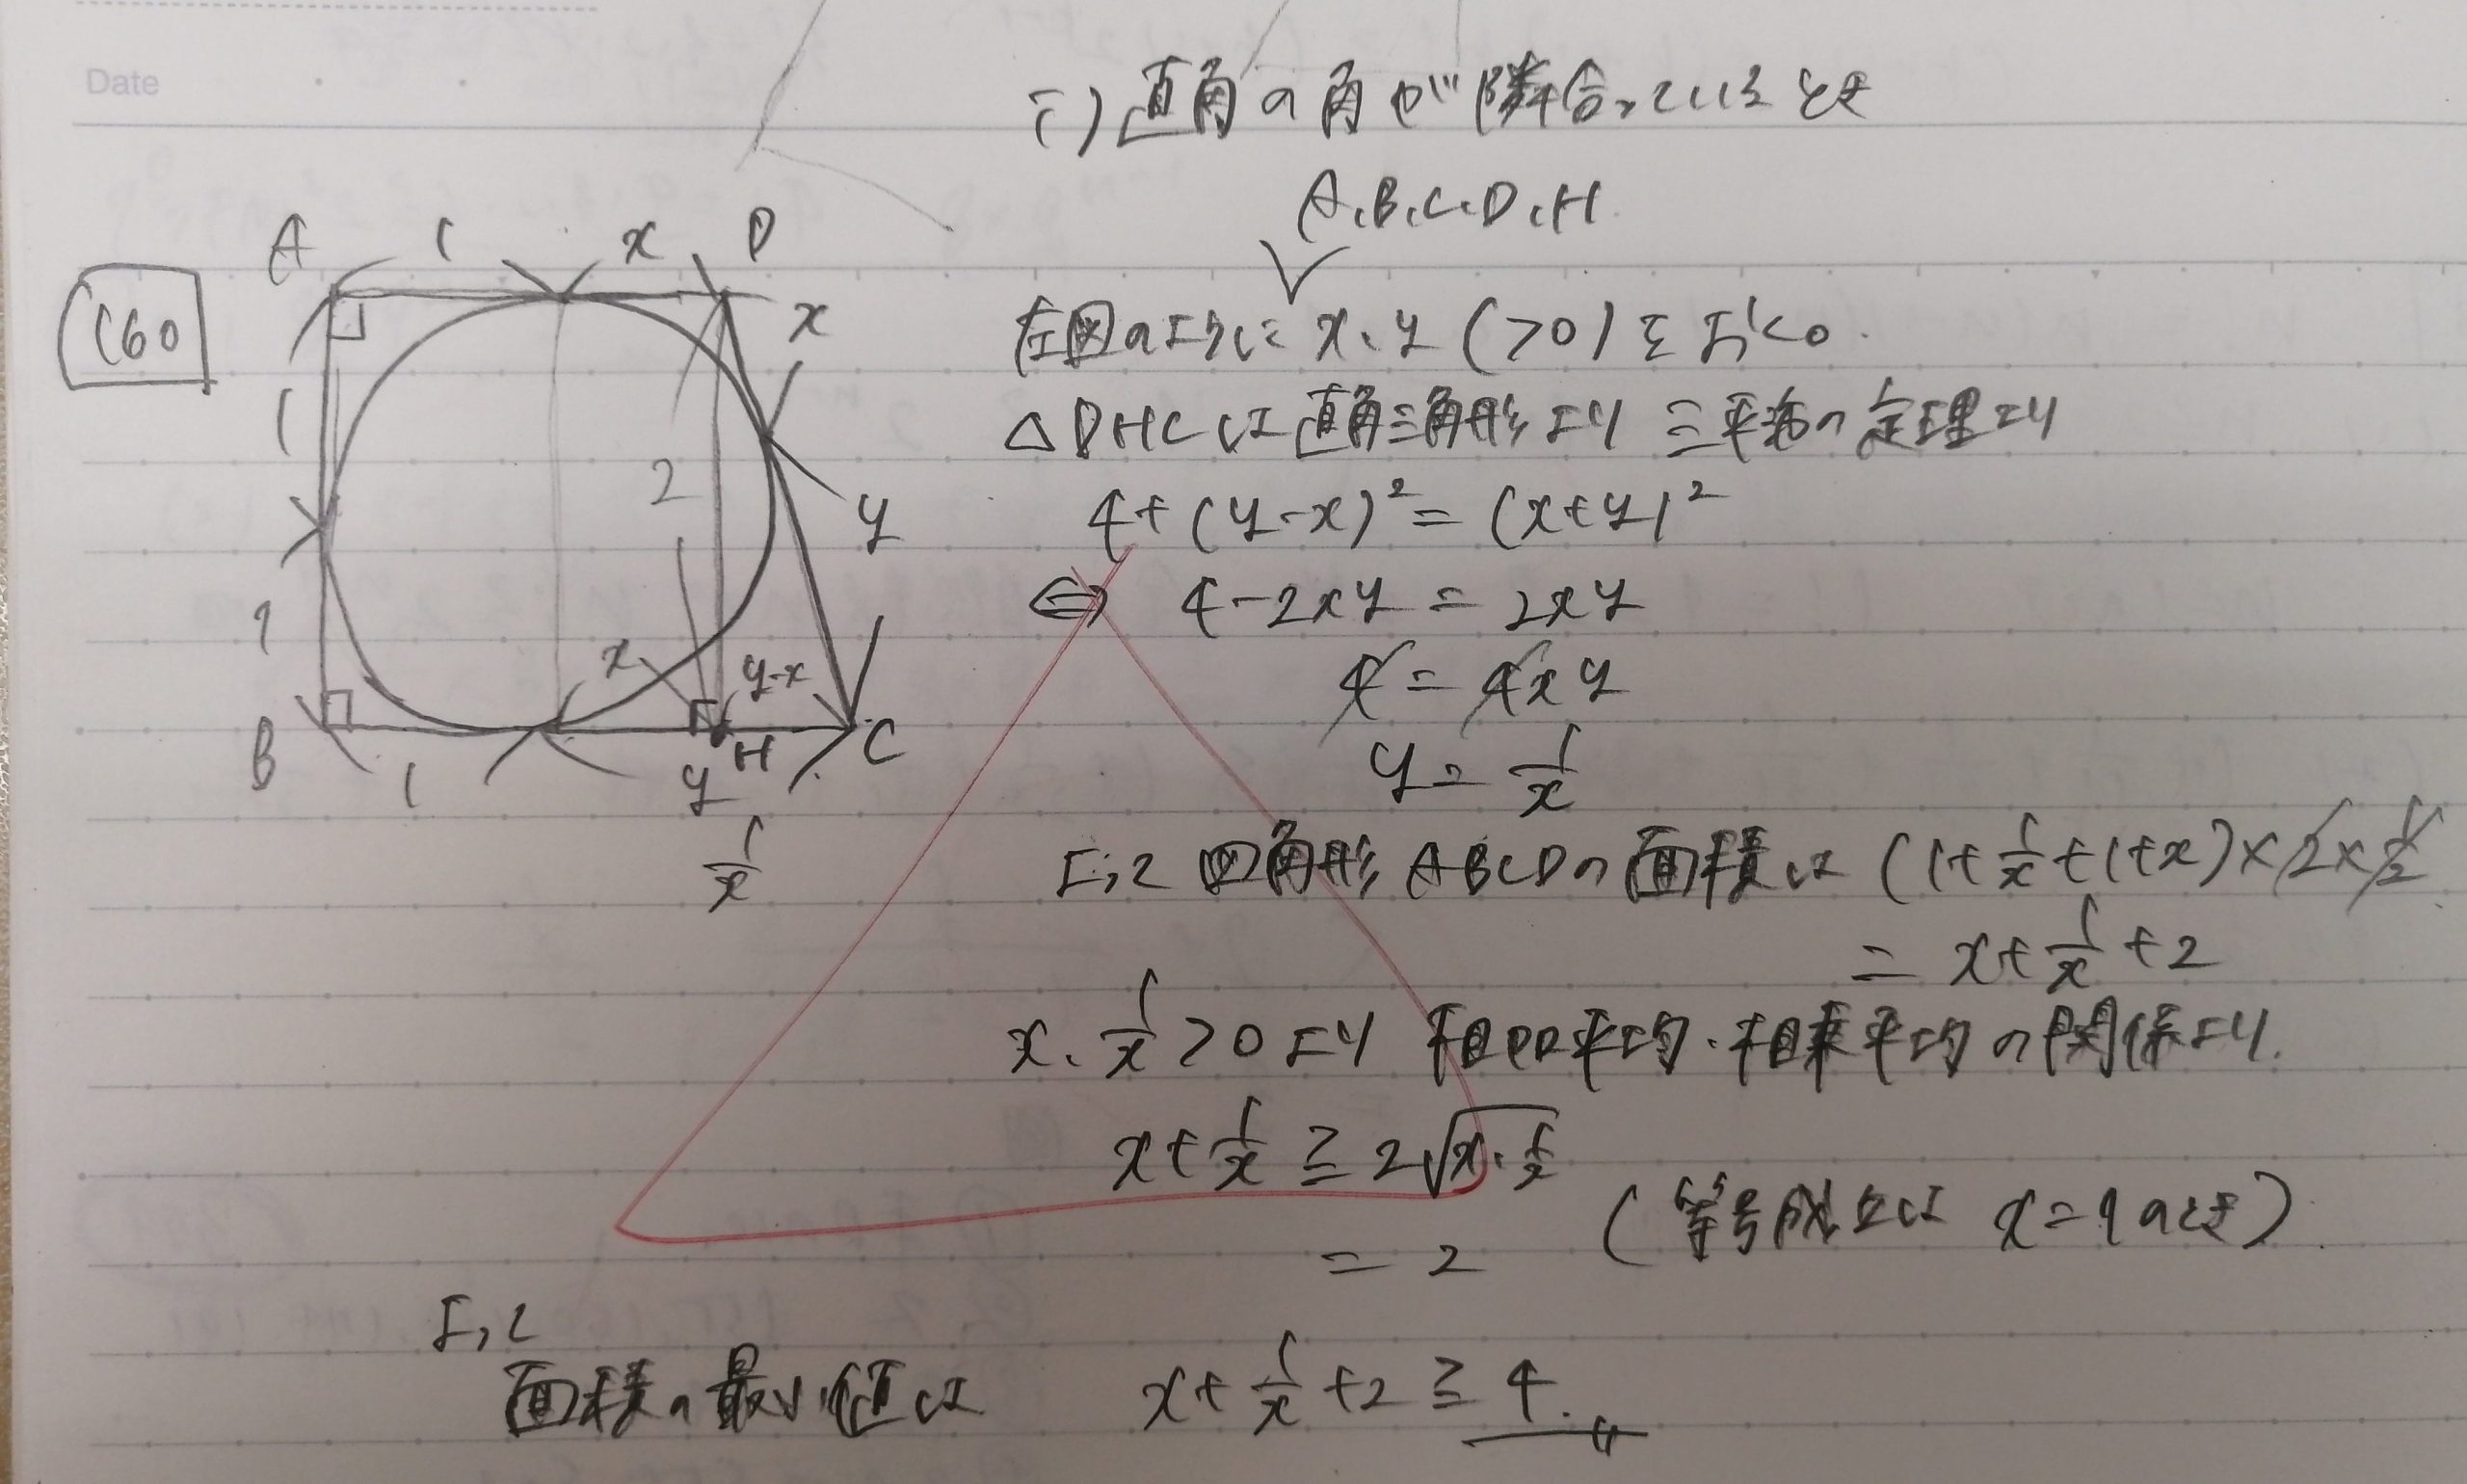 Date
i) 直角の角が隣合っているとき
A, B, C, D, H.
160
A 1 x D
x
1
2
y
1
x y-x
B 1 y H C
1/x
左図のように x, y (>0) をおく。
△DHCは直角三角形より 三平方の定理より
4+(y-x)² = (x+y)²
⇔ 4-2xy = 2xy
4 = 4xy
y = 1/x
よって 四角形 ABCDの面積は (1+1/x+1+x)×2×1/2
= x+1/x+2
x, 1/x >0 より 相加平均・相乗平均の関係より.
x+1/x ≧ 2√x・1/x
(等号成立は x=1のとき).
= 2
よって
面積の最小値は x+1/x+2 ≧ 4.